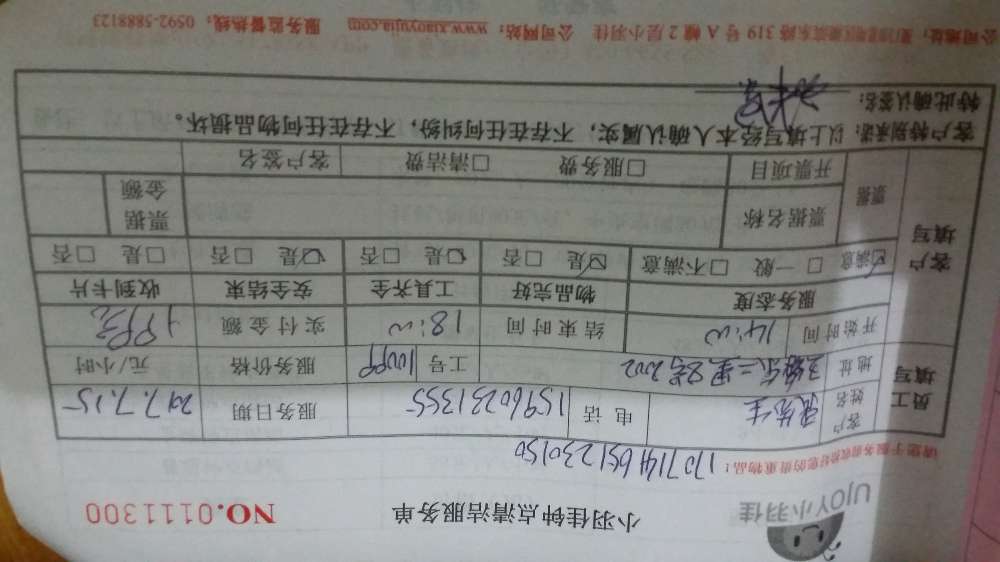 UJOY小羽佳
小羽佳钟点清洁服务单 NO.0111300
请您于服务前收拾好您的贵重物品：170714651230150
员工填写 客户姓名 先生 电话 15960231355 服务日期 2017.7.15
地址 2002 工号 10099 服务价格 元/小时
开始时间 14:00 结束时间 18:00 实付金额 199元
客户填写 服务态度 物品完好 工具齐全 安全结束 收到卡片
☑满意 □一般 □不满意 ☑是 □否 ☑是 □否 ☑是 □否 □是 □否
票据 票据名称 票据金额
开票项目 □服务费 □清洁费 客户签名
客户特别承诺：以上填写经本人确认属实，不存在任何纠纷，不存在任何物品损坏。
特此确认签名：
公司地址：厦门 路319号A幢2层小羽佳 公司网站：www.xiaoyujia.com 服务监督热线：0592-5888123